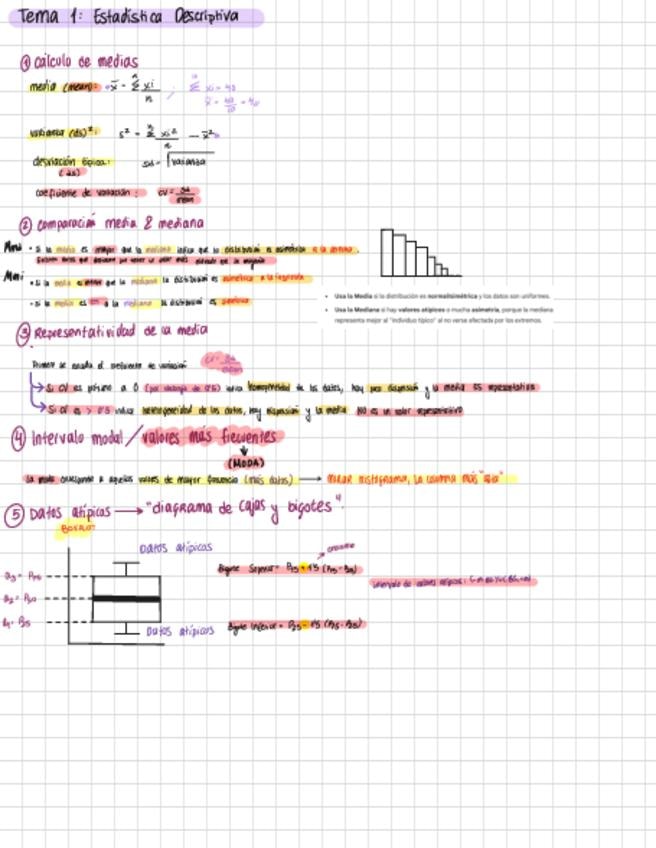 Tema 1: Estadística Descriptiva
① Cálculo de medias
media (mean): x̄ = Σ xi / n ; Σ xi = 40
varianza (ds)²: s² = Σ xi² / n − x̄²
desviación típica: sd = √varianza
(ds)
coeficiente de variación: CV = sd / mean
② comparación media & mediana
• Si la media es mayor que la mediana indica que la distribución es asimétrica a la derecha.
• Si la media es menor que la mediana la distribución es asimétrica a la izquierda
• Si la media es = a la mediana la distribución es simétrica
• Usa la Media si la distribución es normal/simétrica y los datos son uniformes.
• Usa la Mediana si hay valores atípicos o mucha asimetría, porque la mediana
representa mejor al "individuo típico" al no verse afectada por los extremos.
③ Representatividad de la media
Primero se estudia el coeficiente de variación CV = sd
Si CV es próximo a 0 (por debajo de 0'5) indica homogeneidad de los datos, hay poca dispersión y la media ES representativa
Si CV es > 0'5 indica heterogeneidad de los datos, hay dispersión y la media NO es un valor representativo
④ Intervalo modal / valores más frecuentes
(MODA)
La moda corresponde a aquellos valores de mayor frecuencia (más datos) → MIRAR histograma, la columna más "alta"
⑤ Datos atípicos → "diagrama de cajas y bigotes".
BOXPLOT
Datos atípicos
Bigote Superior = P75 + 1'5 (P75 - P25)
Q3 = P75
Q2 = P50
Q1 = P25
Datos atípicos
Bigote Inferior = P25 - 1'5 (P75 - P25)
Intervalo de valores atípicos: